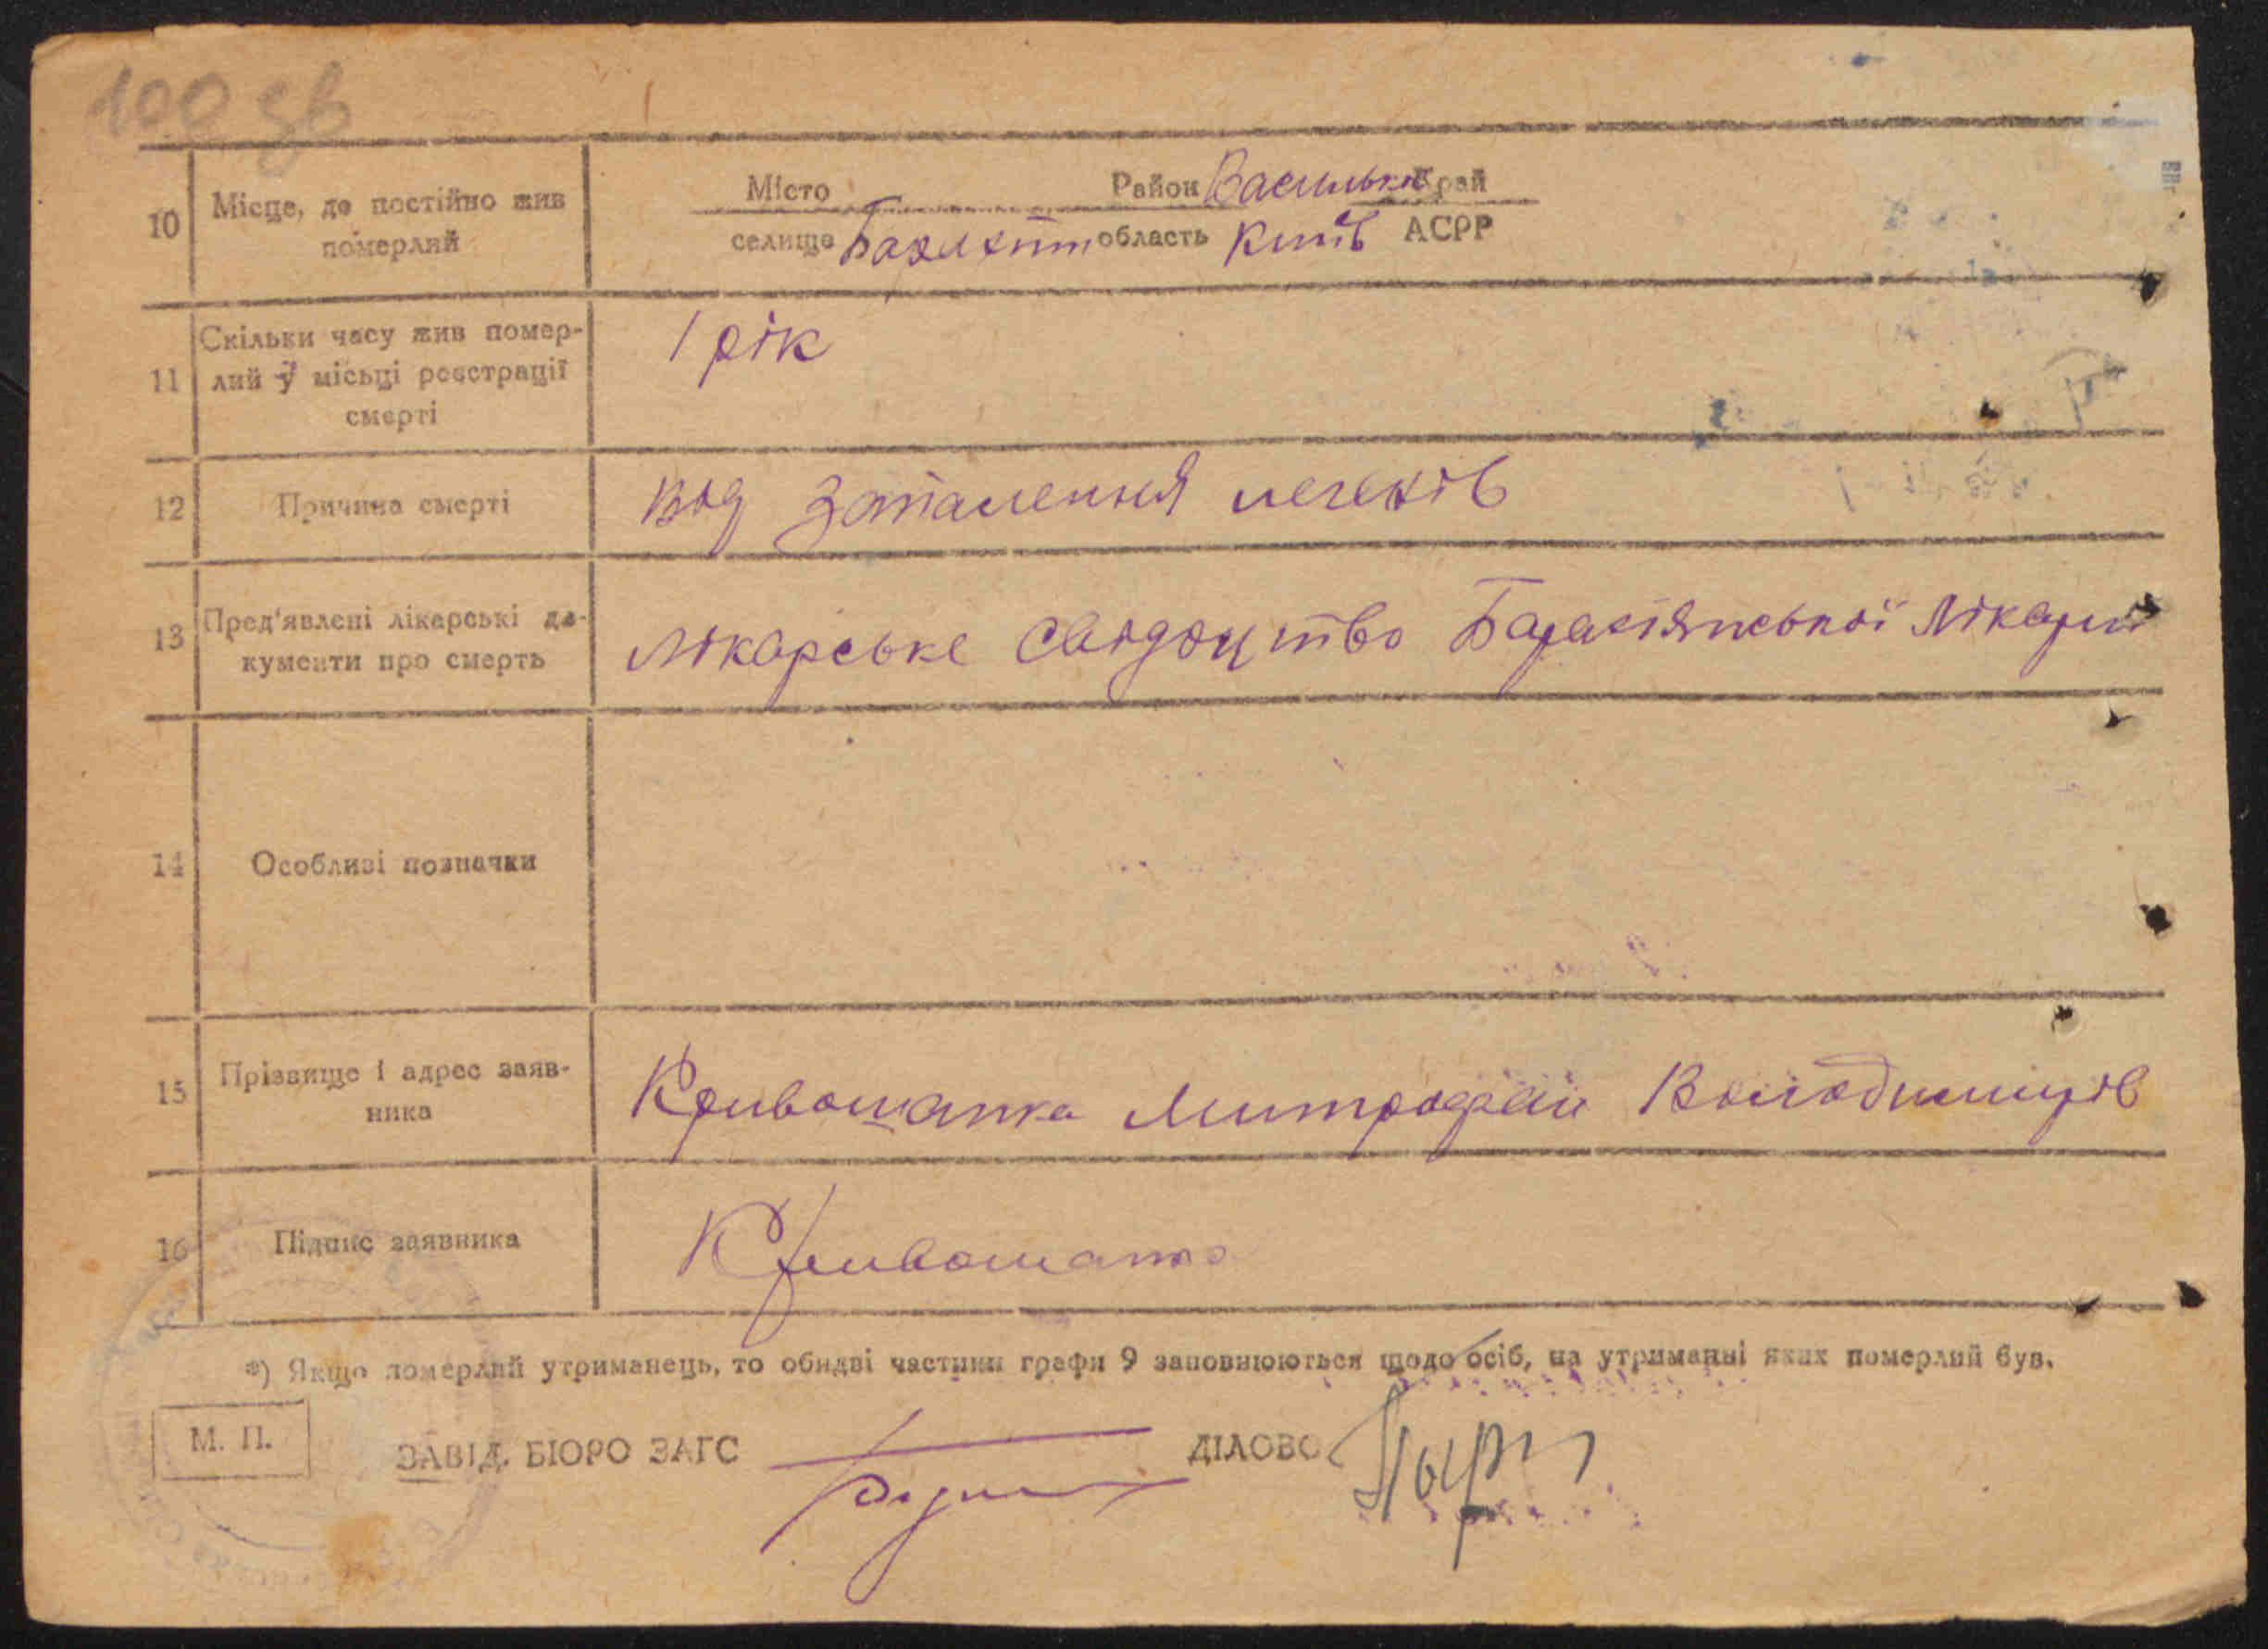 100 зв
10 Місце, де постійно жив
Місто Район Васильків Край
померлий
селище область Київ АСРР
11 Скільки часу жив помер-
лий у місьці реєстрації
смерті
1 рік
12 Причина смерті
Від запалення легенів
13 Пред'явлені лікарські до-
кументи про смерть
Лікарське свідоцтво Барахтянської лікарні
14 Особливі позначки
15 Прізвище і адрес заяв-
ника
Кривошапка Митрофан
16 Підпис заявника
Кривошапка
*) Якщо померлий утриманець, то обидві частини графи 9 заповнюються щодо осіб, на утриманні яких померлий був.
М. П.
ЗАВІД. БЮРО ЗАГС
ДІЛОВО